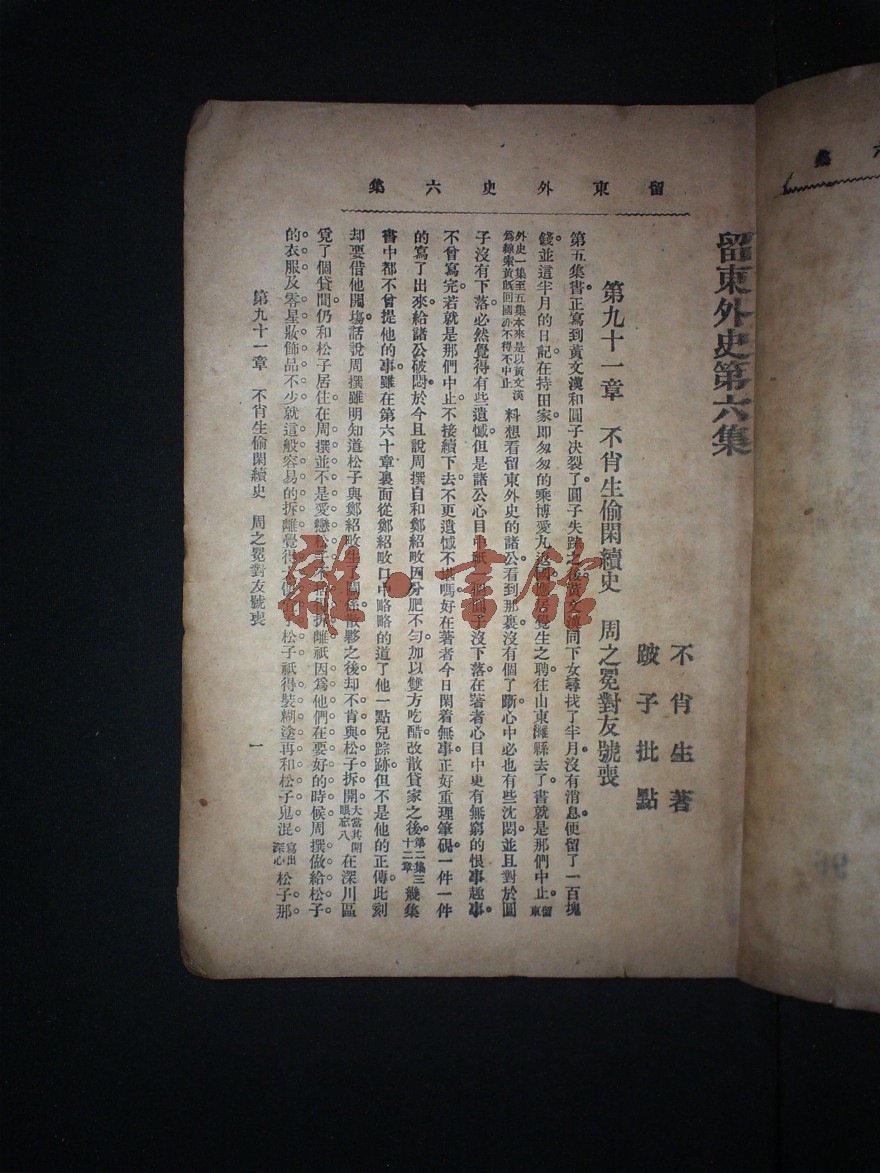 留東外史六集
留東外史第六集
不肖生著
跛子批點
第九十一章 不肖生偷閑續史 周之冕對友號喪
第五集書。正寫到黃文漢和圓子決裂了。圓子失踪之後。黃文漢同下女尋找了半月。沒有消息。便留了一百塊
錢。並這半月的日記。在持田家。即匆匆的乘博愛丸返國。應居覺生之聘。往山東濰縣去了。書就是那們中止。留東
外史一集至五集本來是以黃文漢爲線索黃旣回國亦不得不中止 料想看留東外史的諸公。看到那裏沒有個了斷。心中必也有些沈悶。並且對於圓
子沒有下落。必然覺得有些遺憾。但是諸公心目中祇一個圓子沒下落。在著者心目中更有無窮的恨事趣事。
不曾寫完。若就是那們中止。不接續下去。不更遺憾不
嗎。好在著者今日閑着無事。正好重理筆硯。一件一件
的寫了出來。給諸公破悶。於今且說周撰自和鄭紹畋因分肥不勻。加以雙方吃醋。改散貸家之後。第二集三十二章 幾集
書中都不曾提他的事。雖在第六十章裏面從鄭紹畋口中略略的道了他一點兒踪跡。但不是他的正傳。此刻
却要借他開塲。話說周撰雖明知道松子與鄭紹畋生了關係。散夥之後。却不肯與松子拆開。大當其開眼忘八 在深川區
覓了個貸間。仍和松子居住。在周撰並不是愛戀松子。
拆離。祇因爲他們在要好的時候。周撰做給松子
的衣服及零星妝飾品不少。就這般容易的拆離。覺得
松子祇得裝糊塗。再和松子鬼混。寫出深心 松子那
第九十一章 不肖生偷閑續史 周之冕對友號喪 一
雜·書館
六集